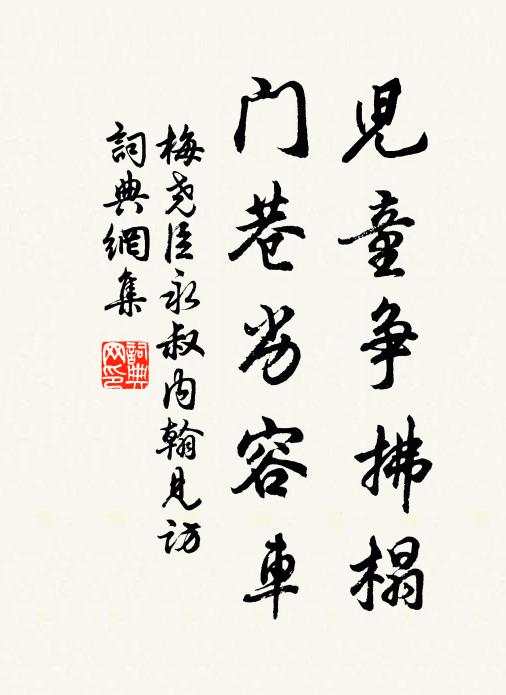 兒童争拂榻
门巷劣容車
梅尧臣永叔内翰見访
詞典網集
詞典网印